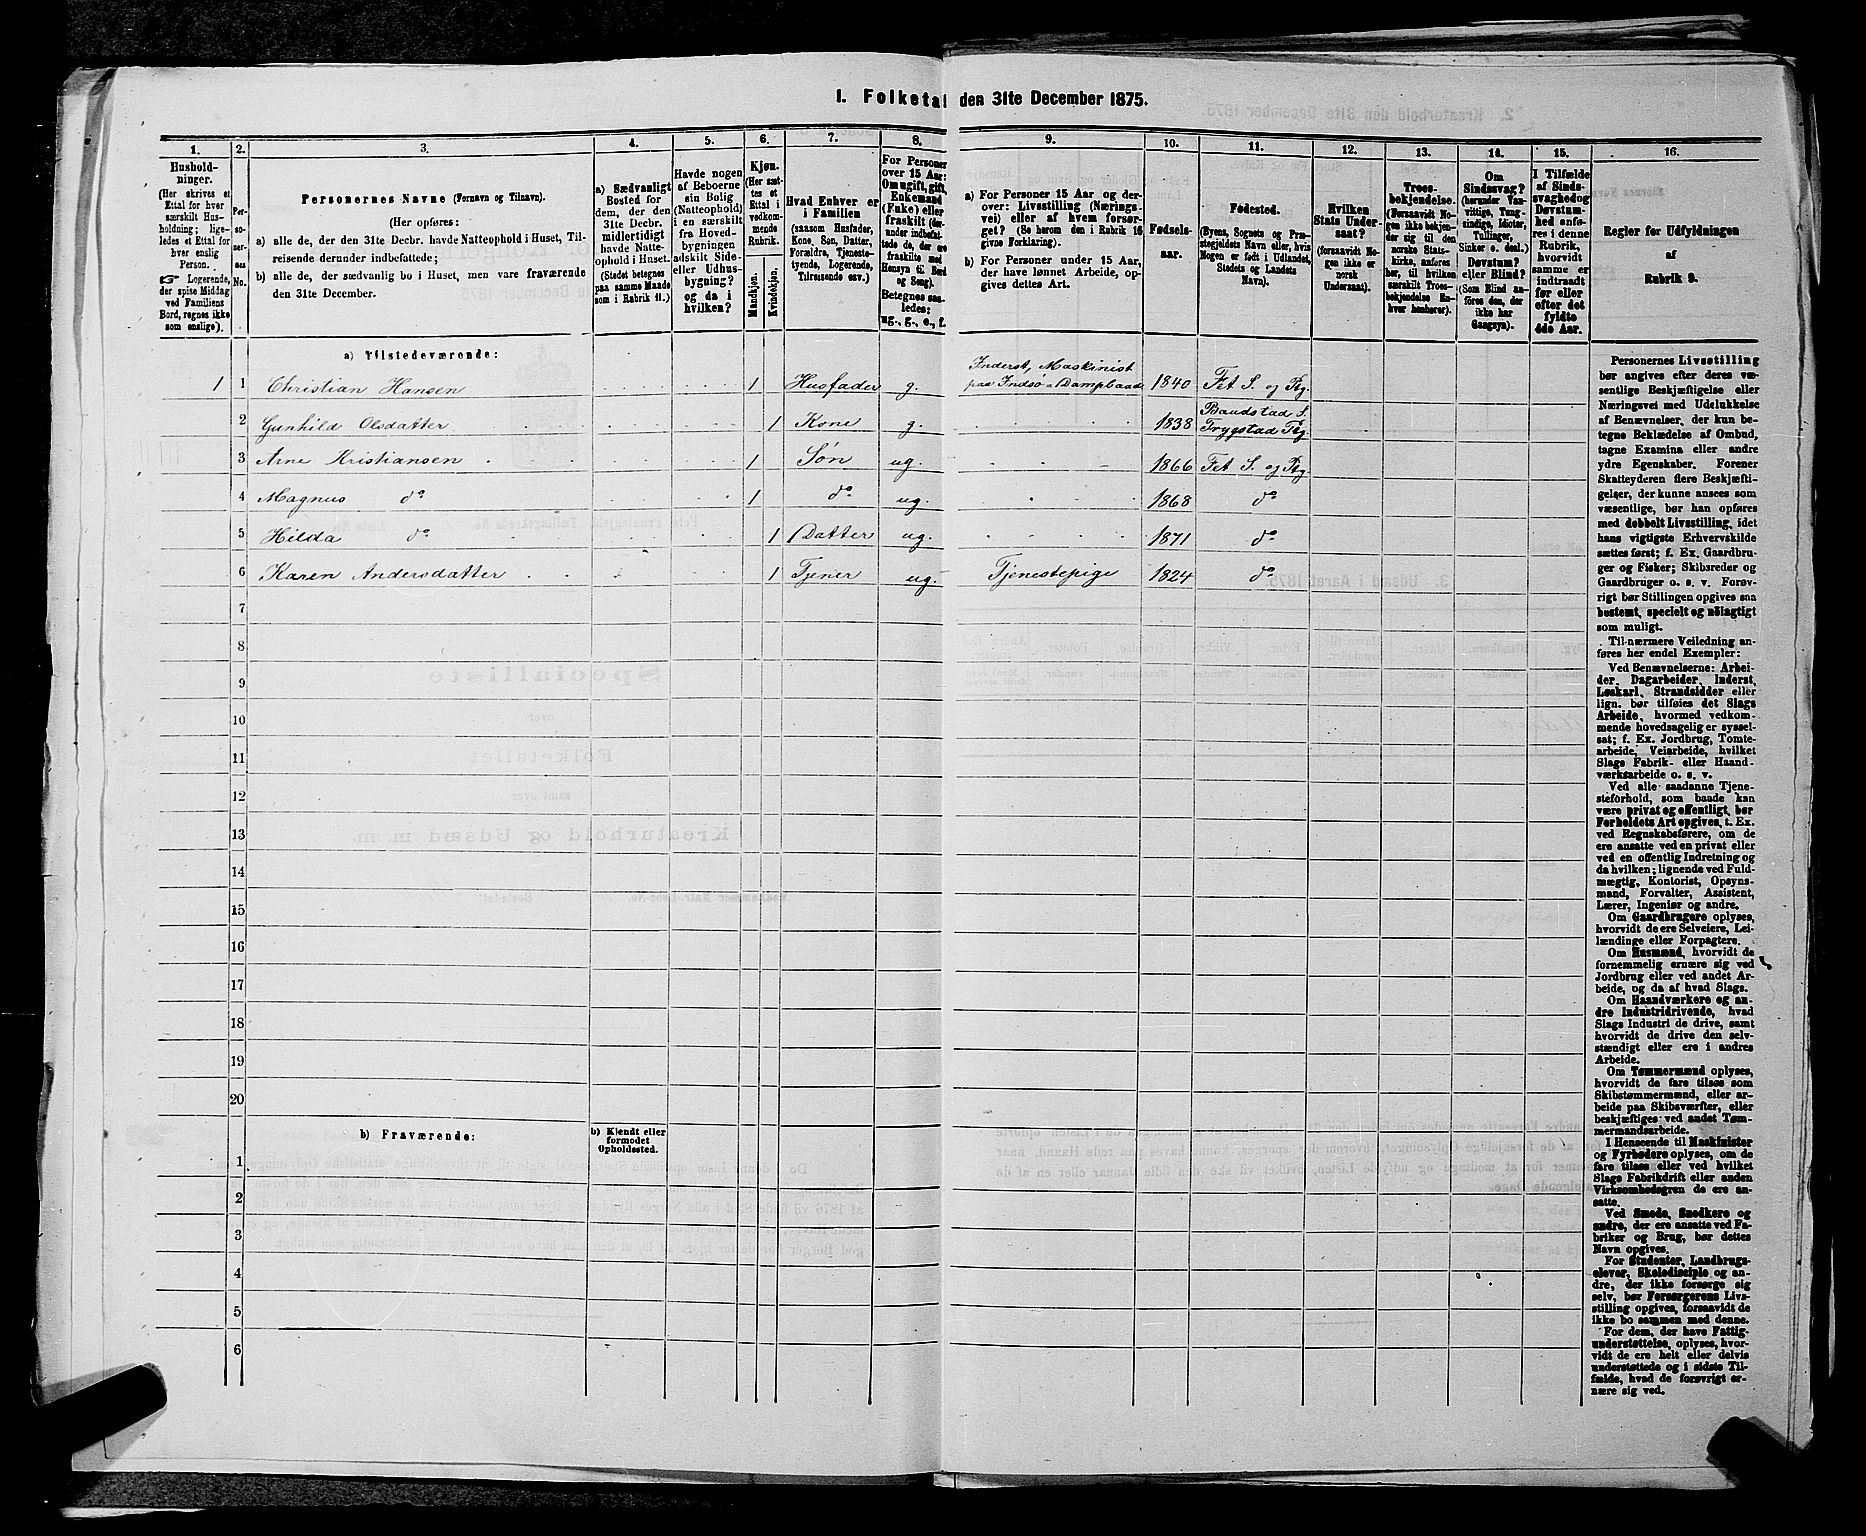 1. Folketal den 31te December 1875.
1.
Hushold-
ninger.
(Her skrives et
Ettal for hver
særskilt Hus-
holdning; lige-
ledes et Ettal for
hver enslig
Person.
☞ Logerende,
der spise Middag
ved Familiens
Bord, regnes ikke
som enslige).
2.
Per-
soner-
nes
No.
3.
Personernes Navne (Fornavn og Tilnavn).
(Her opføres:
a) alle de, der den 31te Decbr. havde Natteophold i Huset, Til-
reisende derunder indbefattede;
b) alle de, der sædvanlig bo i Huset, men vare fraværende
den 31te December.
4.
a) Sædvanligt
Bosted for
dem, der den
31te Decbr.
midlertidigt
havde Natte-
ophold i Huset.
(Stedet betegnes
paa samme Maade
som i Rubrik 11.)
5.
Havde nogen
af Beboerne
sin Bolig
(Natteophold)
i en særskilt
fra Hoved-
bygningen
adskilt Side-
eller Udhus-
bygning?
og da i
hvilken?
6.
Kjøn.
(Her sæt-
tes et
Ettal i
vedkom-
mende
Rubrik.
Mandkjøn.
Kvindekjøn.
7.
Hvad Enhver er
i Familien
(saasom Husfader,
Kone, Søn, Datter,
Forældre, Tjeneste-
tyende, Logerende,
Tilreisende osv.)
8.
For Personer
over 15 Aar:
Om ugift, gift,
Enkemand
(Enke) eller
fraskilt (der-
under indbefat-
tede de, der ere
fraskilte med
Hensyn til Bord
og Seng).
Betegnes saa-
ledes:
ug., g., e., f.
9.
a) For Personer 15 Aar og der-
over: Livsstilling (Nærings-
vei) eller af hvem forsør-
get? (Se herom den i Rubrik 16
givne Forklaring).
b) For Personer under 15 Aar,
der have lønnet Arbeide, op-
gives dettes Art.
10.
Fødsels-
aar.
11.
Fødested.
(Byens, Sognets og Præ-
stegjeldets Navn eller, hvis
Nogen er født i Udlandet,
Stedets og Landets
Navn).
12.
Hvilken
Stats Under-
saat?
(forsaavidt No-
gen ikke er
norsk
Undersaat).
13.
Troes-
bekjendelse.
(Forsaavidt No-
gen ikke bekjen-
der sig til den
norske Stats-
kirke, anføres
her, til hvilken
særskilt Troes-
bekjendelse En-
hver henhører).
14.
Om
Sindssvag?
(herunder Van-
vittige, Tung-
sindige, Idioter,
Tullinger,
Sinker o. desl.)
Døvstum?
eller Blind?
(Som Blind an-
føres den, der
ikke har
Gangsyn).
15.
I Tilfælde
af Sinds-
svaghed og
Døvstum-
hed anfø-
res i denne
Rubrik,
hvorvidt
samme er
indtraadt
før eller
efter det
fyldte
4de Aar.
16.
Regler for Udfyldningen
af
Rubrik 9.
a) Tilstedeværende:
1 1 Christian Hansen 1 Husfader g. Inderst, Maskinist paa Indsø-Dampbaad 1840 Fet S. og Pg.
2 Gunhild Olsdatter 1 Kone g. 1838 Baadstad S. Trygstad Pg.
3 Arne Kristiansen 1 Søn ug. 1866 Fet S. og Pg.
4 Magnus do 1 do ug. 1868 do
5 Hilda do 1 Datter ug. 1871 do
6 Karen Andersdatter 1 Tjener ug. Tjenestepige 1824 do
7
8
9
10
11
12
13
14
15
16
17
18
19
20
b) Fraværende:
b) Kjendt eller
formodet
Opholdssted.
1
2
3
4
5
6
Personernes Livsstilling
bør angives efter deres væ-
sentlige Beskjæftigelse eller
Næringsvei med Udelukkelse
af Benævnelser, der kun be-
tegne Beklædelse af Ombud,
tagne Examina eller andre
ydre Egenskaber. Forener
Skatteyderen flere Beskjæfti-
gelser, der kunne ansees som
væsentlige, bør han opføres
med dobbelt Livsstilling, idet
hans vigtigste Erhvervskilde
sættes først; f. Ex. Gaardbru-
ger og Fisker; Skibsreder og
Gaardbruger o. s. v. Forøv-
rigt bør Stillingen opgives saa
bestemt, specielt og nøiagtigt
som muligt.
Til nærmere Veiledning an-
føres her endel Exempler:
Ved Benævnelserne: Arbei-
der, Dagarbeider, Inderst,
Løskarl, Strandsidder eller
lign. bør tilføies det Slags
Arbeide, hvormed vedkom-
mende hovedsagelig er syssel-
sat; f. Ex. Jordbrug, Tomte-
arbeide, Veiarbeide, hvilket
Slags Fabrik- eller Haand-
værksarbeide o. s. v.
Ved alle saadanne Tjene-
steforhold, som baade kan
være privat og offentligt, bør
Forholdets Art opgives, t. Ex.
ved Regnskabsførere, om de
ere ansatte ved en privat eller
ved en offentlig Indretning og
da hvilken; lignende ved Fuld-
mægtig, Kontorist, Opsyns-
mand, Forvalter, Assistent,
Lærer, Ingeniør og andre.
Om Gaardbrugere oplyses,
hvorvidt de ere Selveiere, Lei-
lændinge eller Forpagtere.
Om Husmænd, hvorvidt de
fornemmelig ernære sig ved
Jordbrug eller ved andet Ar-
beide, og da af hvad Slags.
Om Haandværkere og an-
dre Industridrivende, hvad
Slags Industri de drive, samt
hvorvidt de drive den selv-
stændigt eller ere i andres
Arbeide.
Om Tømmermænd oplyses,
hvorvidt de fare tilsøs som
Skibstømmermænd, eller ar-
beide paa Skibsværfter, eller
beskjæftiges ved andet Tøm-
mermandsarbeide.
I Henseende til Maskinister
og Fyrbødere oplyses, om de
fare tilsøs eller ved hvilket
Slags Fabrikdrift eller anden
Virksomhedsgren de ere an-
satte.
Ved Smede, Snedkere og
andre, der ere ansatte ved Fa-
briker og Brug, bør dettes
Navn opgives.
For Studenter, Landbrugs-
elever, Skoledisciple og an-
dre, der ikke forsørge sig
selv, bør Forsørgerens Livs-
stilling opgives, forsaavidt de
ikke bo sammen med denne.
For dem, der have Fattig-
understøttelse, oplyses, hvor-
vidt de ere helt eller delvis
understøttede og i sidste Til-
fælde, hvad de forøvrigt er-
nære sig ved.